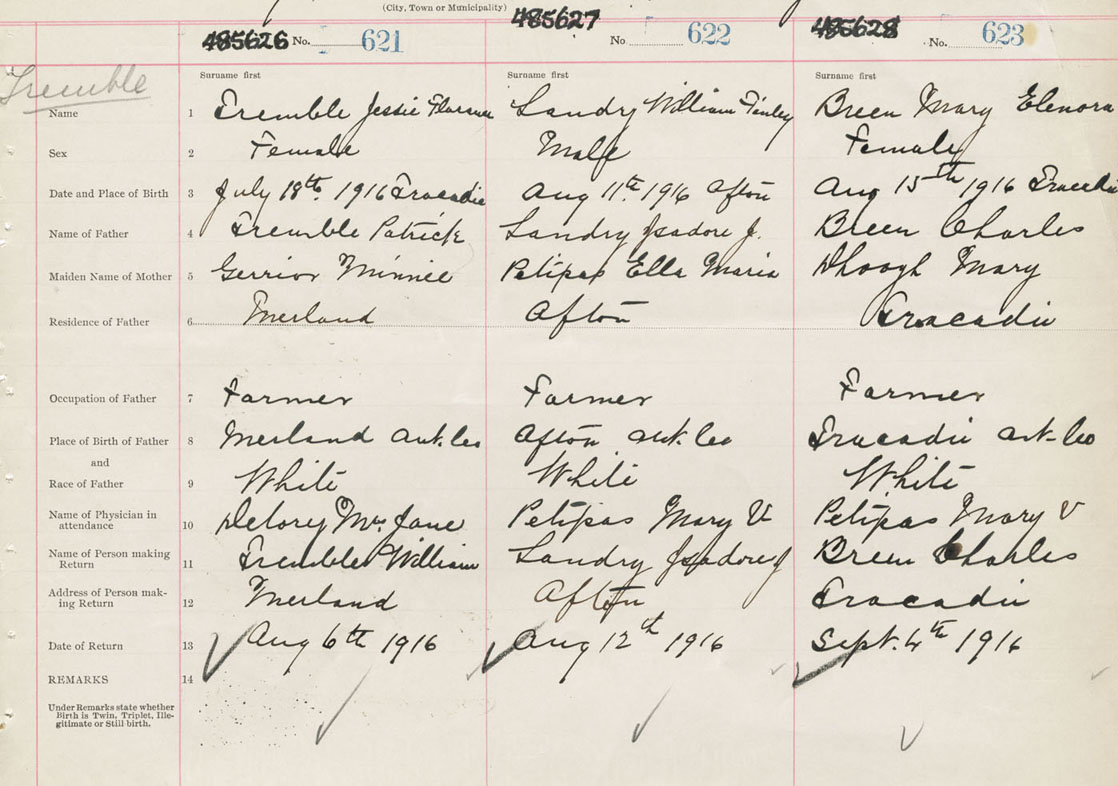 (City, Town or Municipality)
485626 No. 621 485627 No 622 485628 No. 623
Tremble
Surname first Surname first Surname first
Name 1 Tremble Jessie Florence Landry William Finley Breen Mary Elenora
Sex 2 Female Male Female
Date and Place of Birth 3 July 18th. 1916 Tracadie Aug 11th. 1916 Afton Aug 15th 1916 Tracadie
Name of Father 4 Tremble Patrick Landry Isadore J. Breen Charles
Maiden Name of Mother 5 Gerrior Minnie Petipas Ella Maria Mary
Residence of Father 6 Merland Afton Tracadie
Occupation of Father 7 Farmer Farmer Farmer
Place of Birth of Father 8 Merland Ant. Co Afton Ant. Co Tracadie Ant-Co
and
Race of Father 9 White White White
Name of Physician in
attendance 10 Delorey Mrs Jane Petipas Mary V Petipas Mary V
Name of Person making
Return 11 Tremble William Landry Isadore J Breen Charles
Address of Person mak-
ing Return 12 Merland Afton Tracadie
Date of Return 13 Aug 6th 1916 Aug 12th 1916 Sept. 4th 1916
REMARKS 14
Under Remarks state whether
Birth is Twin, Triplet, Ille-
gitimate or Still birth.